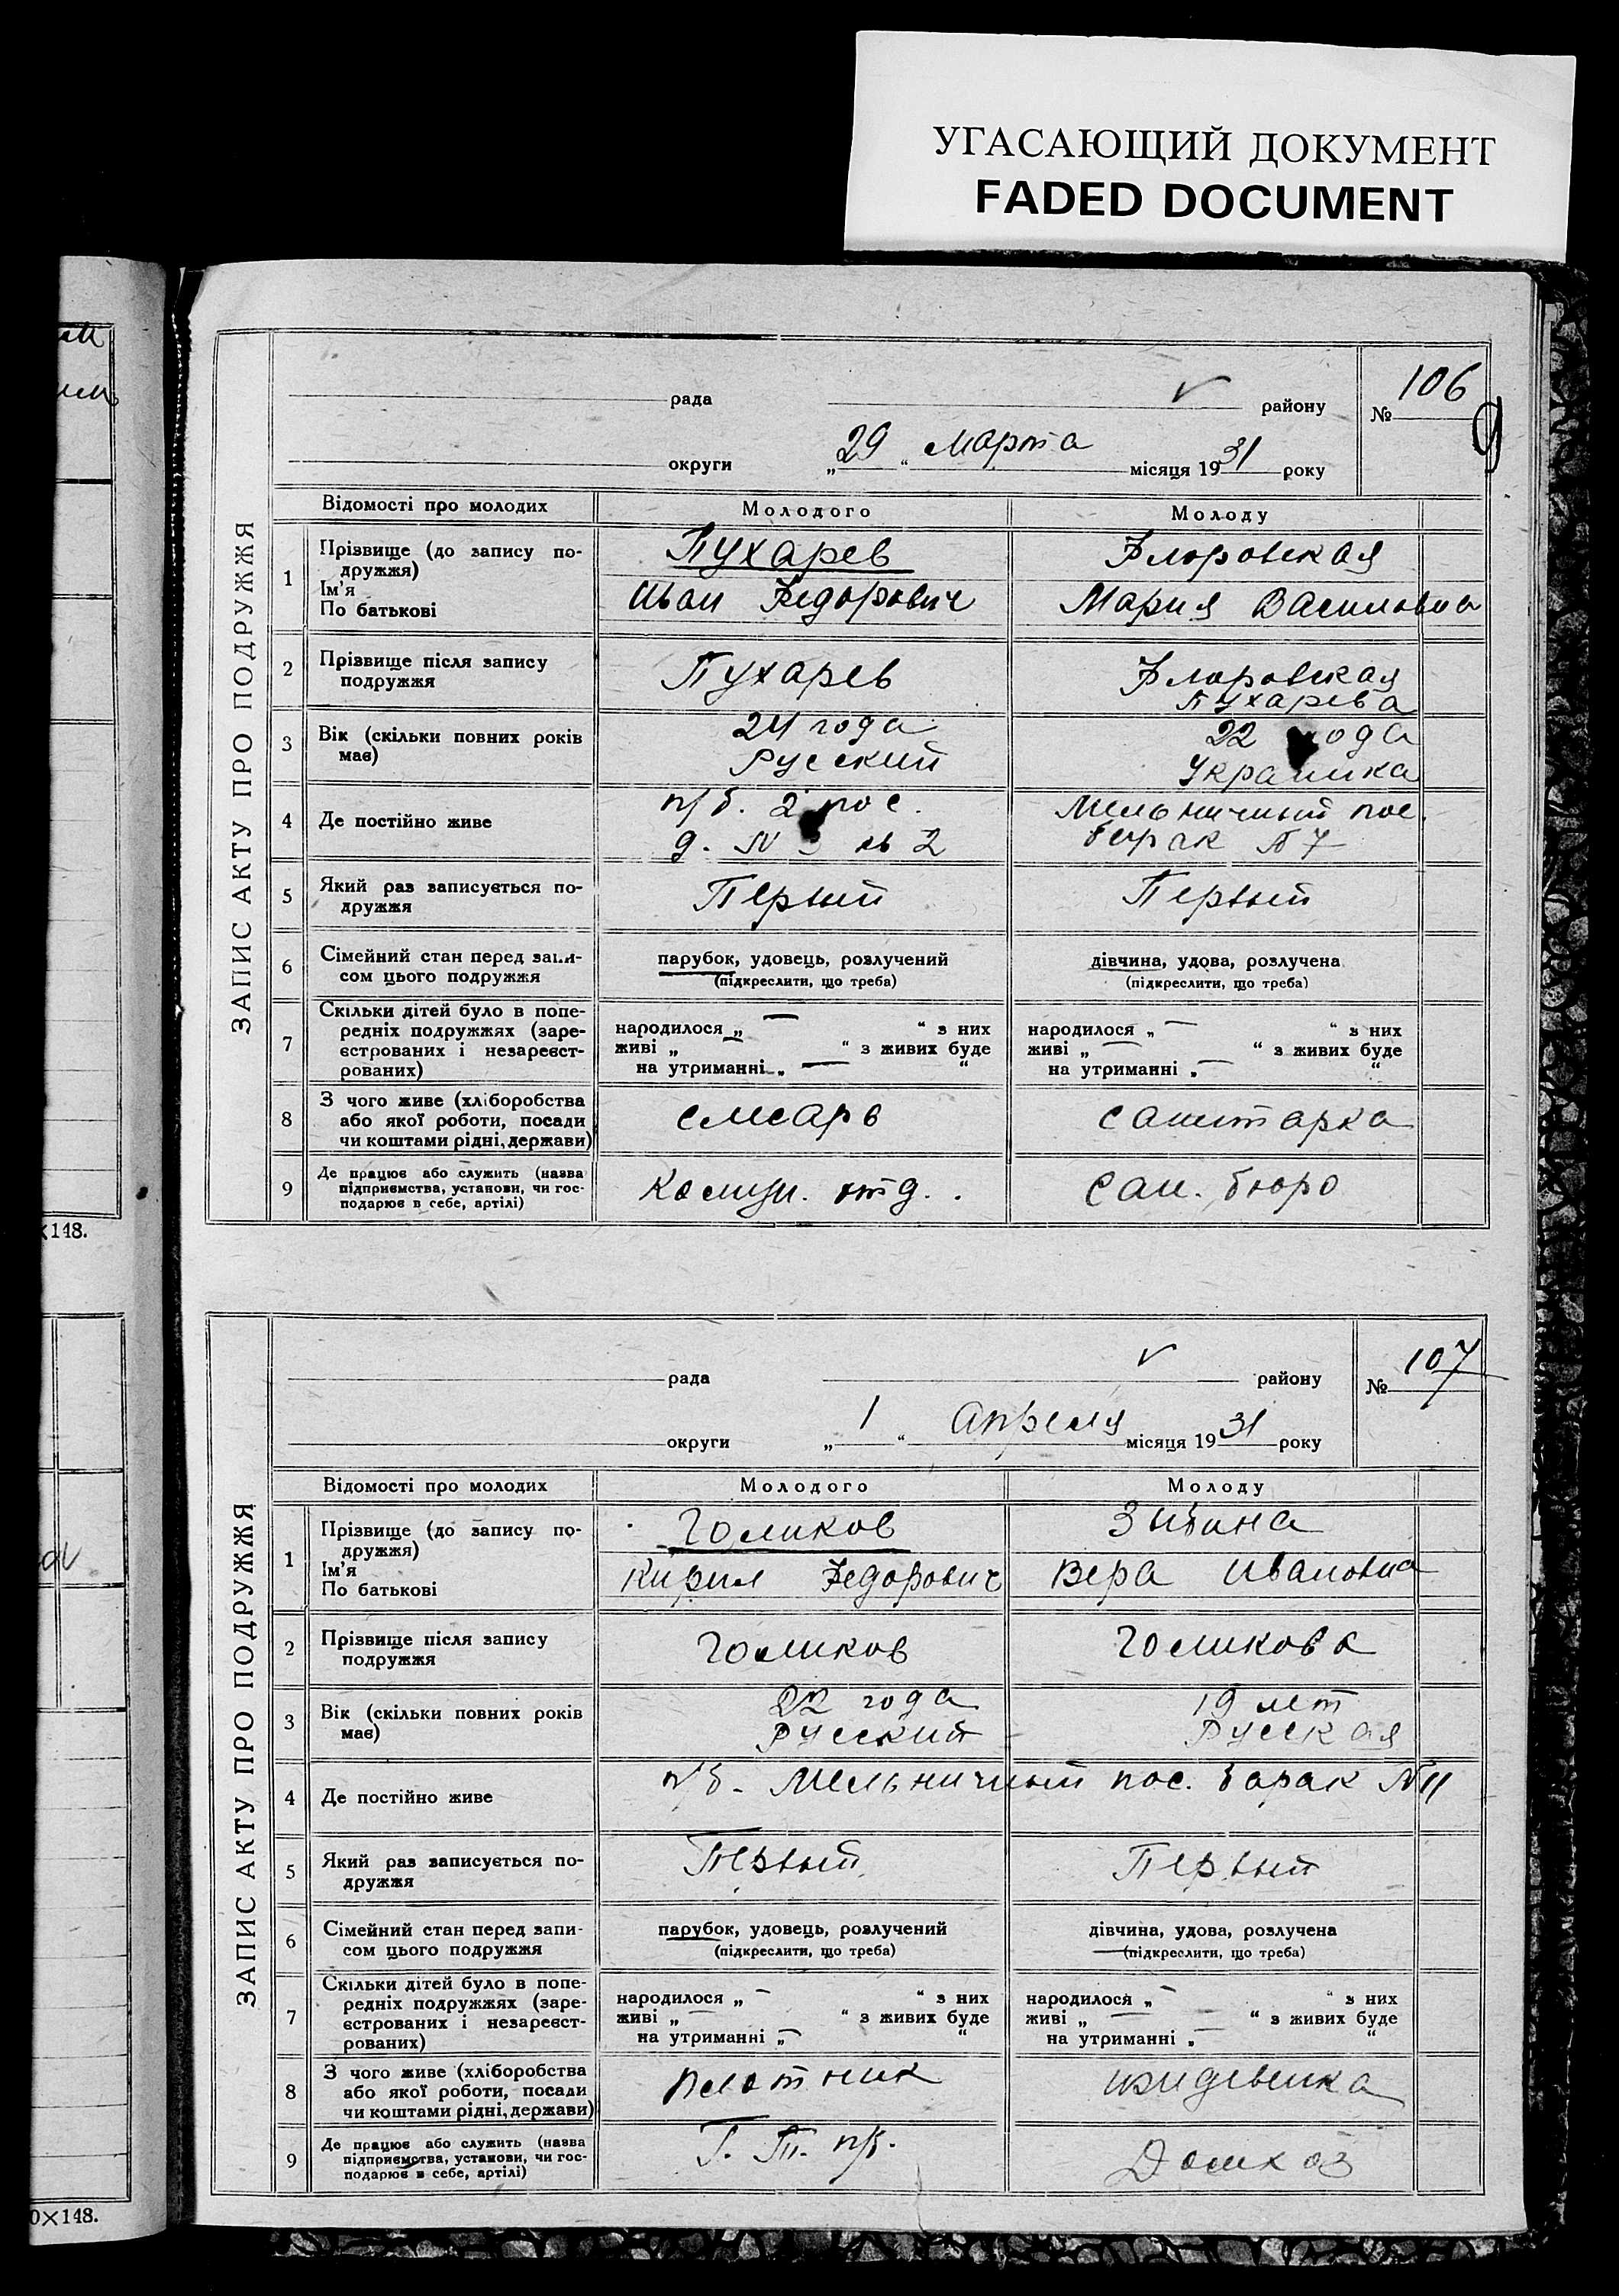 УГАСАЮЩИЙ ДОКУМЕНТ
FADED DOCUMENT
×148.
0×148.
ЗАПИС АКТУ ПРО ПОДРУЖЖЯ
рада району № 106
9
округи „29“ марта місяця 1931 року
Відомості про молодих Молодого Молоду
1 Прізвище (до запису по-
дружжя)
Ім'я
По батькові
Пухарев
Иван Федорович
Флоровская
Мария Василовна
2 Прізвище після запису
подружжя
Пухарев
Флоровская
Пухарева
3 Вік (скільки повних років
має)
24 года
Русский
22 года
Украинка
4 Де постійно живе
п/б. 2 пос.
д. N 3 кв 2
Мельничный пос.
барак N 7
5 Який раз записується по-
дружжя
Первый
Первый
6 Сімейний стан перед запи-
сом цього подружжя
парубок, удовець, розлучений
(підкреслити, що треба)
дівчина, удова, розлучена
(підкреслити, що треба)
7 Скільки дітей було в попе-
редніх подружжях (заре-
єстрованих і незареєст-
рованих)
народилося „ — “ з них
живі „ — “ з живих буде
на утриманні „ — “
народилося „ — “ з них
живі „ — “ з живих буде
на утриманні „ — “
8 З чого живе (хліборобства
або якої роботи, посади
чи коштами рідні, держави)
слесарь
санитарка
9 Де працює або служить (назва
підприємства, установи, чи гос-
подарює в себе, артілі)
Комун. отд.
Сан. бюро
ЗАПИС АКТУ ПРО ПОДРУЖЖЯ
рада району № 107
округи „1“ Апреля місяця 1931 року
Відомості про молодих Молодого Молоду
1 Прізвище (до запису по-
дружжя)
Ім'я
По батькові
Голиков
Кирил Федорович
Вера Ивановна
2 Прізвище після запису
подружжя
Голиков
Голикова
3 Вік (скільки повних років
має)
22 года
Русский
19 лет
Русская
4 Де постійно живе
п/б. Мельничный пос. барак N 11
5 Який раз записується по-
дружжя
Первый
Первый
6 Сімейний стан перед запи-
сом цього подружжя
парубок, удовець, розлучений
(підкреслити, що треба)
дівчина, удова, розлучена
(підкреслити, що треба)
7 Скільки дітей було в попе-
редніх подружжях (заре-
єстрованих і незареєст-
рованих)
народилося „ — “ з них
живі „ — “ з живих буде
на утриманні „ — “
народилося „ — “ з них
живі „ — “ з живих буде
на утриманні „ — “
8 З чого живе (хліборобства
або якої роботи, посади
чи коштами рідні, держави)
Плотник
иждевенка
9 Де працює або служить (назва
підприємства, установи, чи гос-
подарює в себе, артілі)
Домхоз